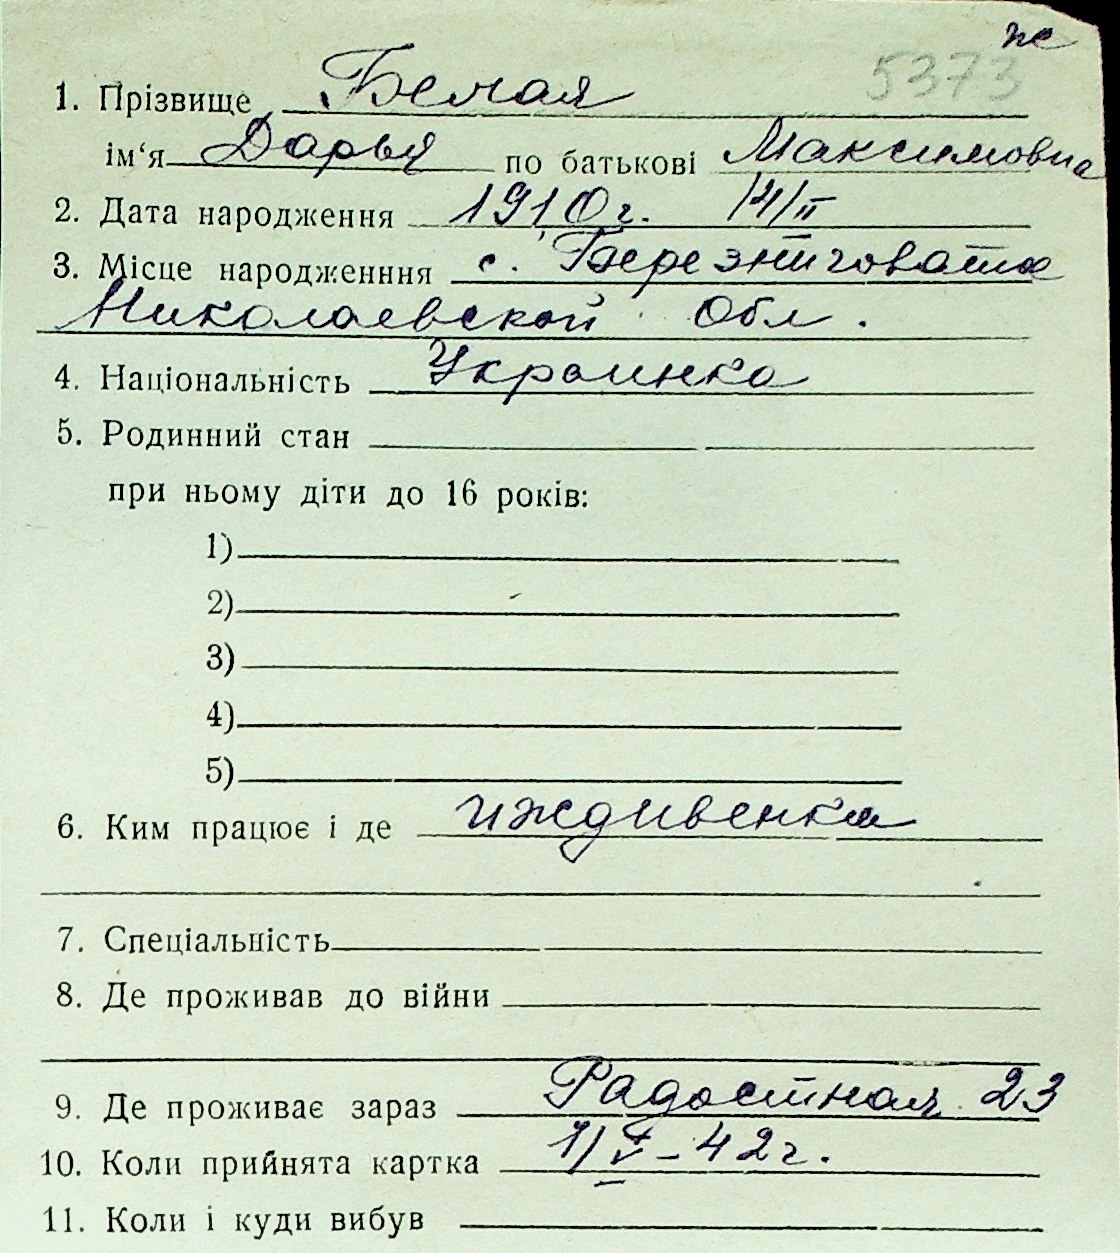 же
5373
1. Прізвище Белая
ім‘я Дарья по батькові Максимовна
2. Дата народження 1910 г. 14/II
3. Місце народженння с. Березниговатое
Николаевской Обл.
4. Національність Украинка
5. Родинний стан
при ньому діти до 16 років:
1)
2)
3)
4)
5)
6. Ким працює і де иждивенка
7. Спеціальність
8. Де проживав до війни
9. Де проживає зараз Радостная 23
10. Коли прийнята картка 1/V – 42 г.
11. Коли і куди вибув